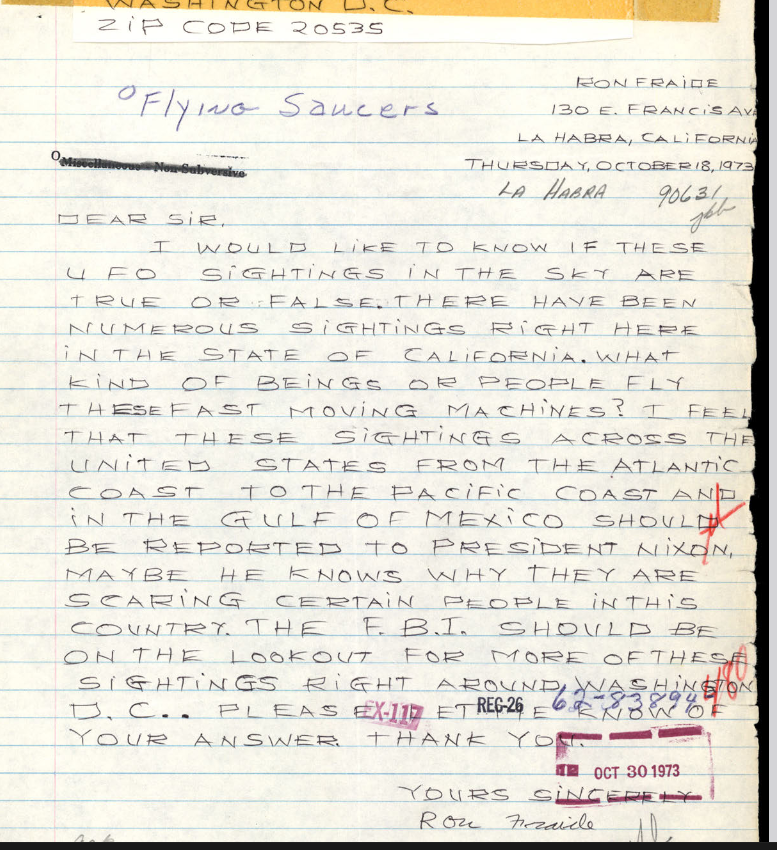 WASHINGTON D.C.
ZIP CODE 20535
RON FRAIDE
Flying Saucers
130 E. FRANCIS AV
LA HABRA, CALIFORNIA
Miscellaneous - Non-Subversive
THURSDAY, OCTOBER 18, 1973
LA HABRA 90631
DEAR SIR,
I WOULD LIKE TO KNOW IF THESE
UFO SIGHTINGS IN THE SKY ARE
TRUE OR FALSE. THERE HAVE BEEN
NUMEROUS SIGHTINGS RIGHT HERE
IN THE STATE OF CALIFORNIA. WHAT
KIND OF BEINGS OR PEOPLE FLY
THESE FAST MOVING MACHINES? I FEEL
THAT THESE SIGHTINGS ACROSS THE
UNITED STATES FROM THE ATLANTIC
COAST TO THE PACIFIC COAST AND
IN THE GULF OF MEXICO SHOULD
BE REPORTED TO PRESIDENT NIXON,
MAYBE HE KNOWS WHY THEY ARE
SCARING CERTAIN PEOPLE IN THIS
COUNTRY. THE F.B.I. SHOULD BE
ON THE LOOKOUT FOR MORE OF THESE
SIGHTINGS RIGHT AROUND WASHINGTON
480
D.C.. PLEASE LET ME KNOW OF
EX-117 REG-26 62-83894
YOUR ANSWER. THANK YOU.
OCT 30 1973
YOURS SINCERELY
Ron Fraide